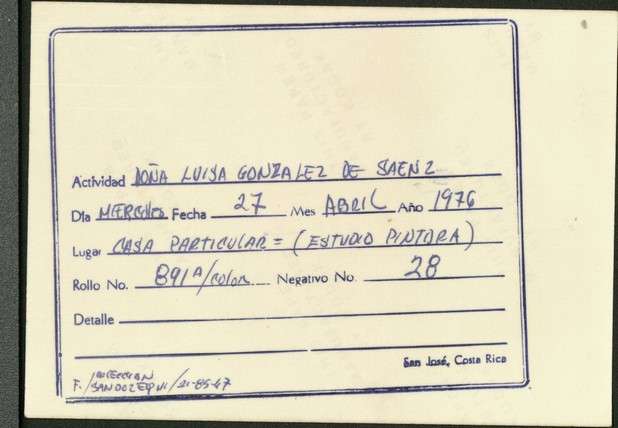 Actividad DOÑA LUISA GONZALEZ DE SAENZ
Día MIERCOLES Fecha 27 Mes ABRIL Año 1976
Lugar CASA PARTICULAR = (ESTUDIO PINTORA)
Rollo No. 891A/COLOR Negativo No. 28
Detalle
San José, Costa Rica
F. / 21-85-47